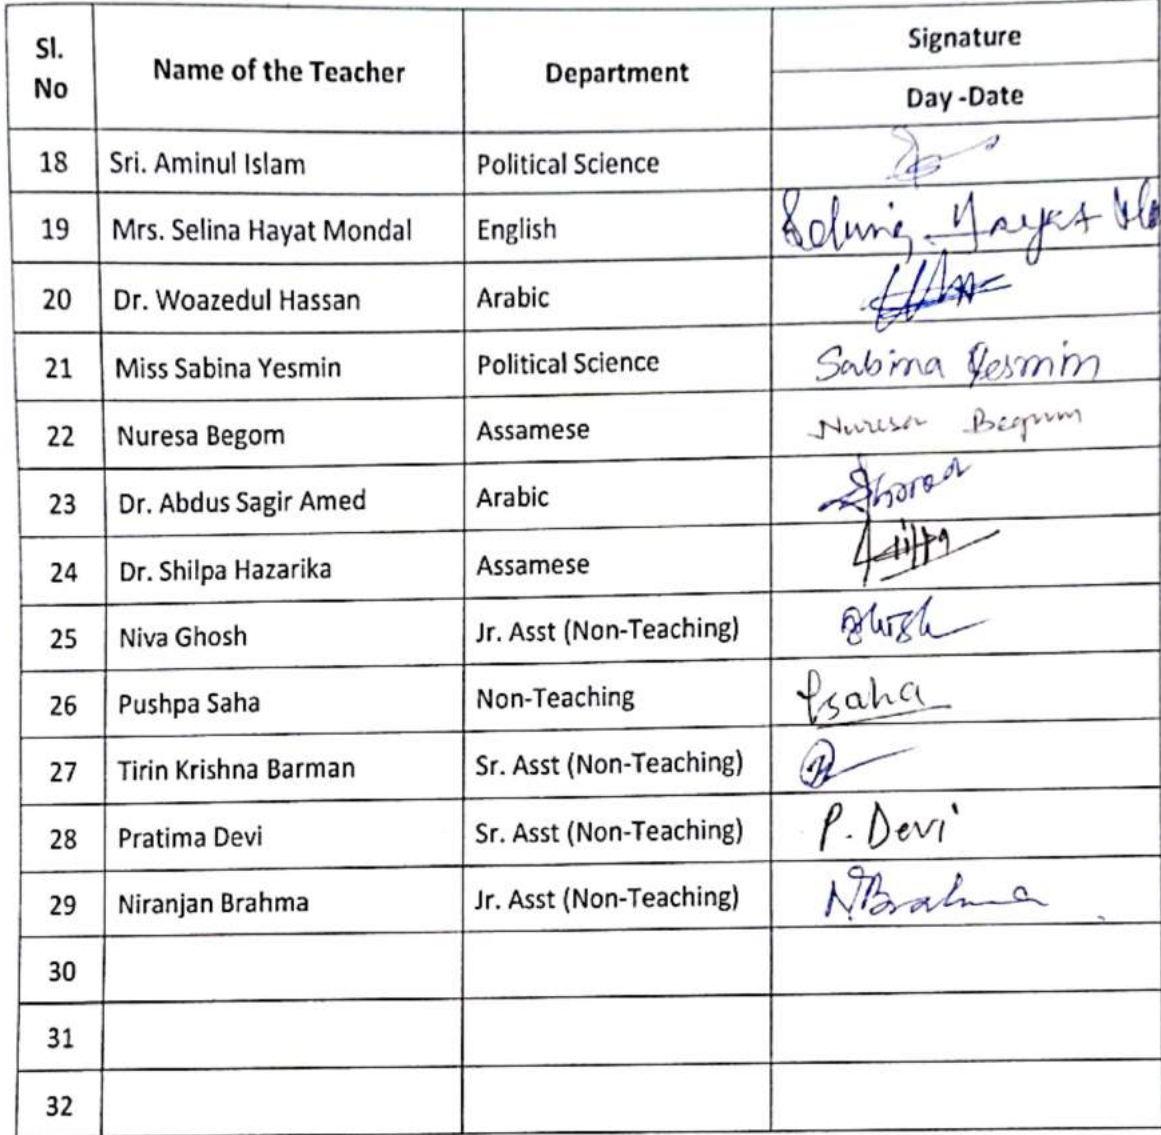 Sl. No | Name of the Teacher | Department | Signature
Day -Date
18 | Sri. Aminul Islam | Political Science
19 | Mrs. Selina Hayat Mondal | English | Selina Hayat
20 | Dr. Woazedul Hassan | Arabic
21 | Miss Sabina Yesmin | Political Science | Sabina Yesmin
22 | Nuresa Begom | Assamese | Nuresa Begum
23 | Dr. Abdus Sagir Amed | Arabic
24 | Dr. Shilpa Hazarika | Assamese
25 | Niva Ghosh | Jr. Asst (Non-Teaching)
26 | Pushpa Saha | Non-Teaching | Psaha
27 | Tirin Krishna Barman | Sr. Asst (Non-Teaching)
28 | Pratima Devi | Sr. Asst (Non-Teaching) | P. Devi
29 | Niranjan Brahma | Jr. Asst (Non-Teaching) | N.Brahma
30
31
32